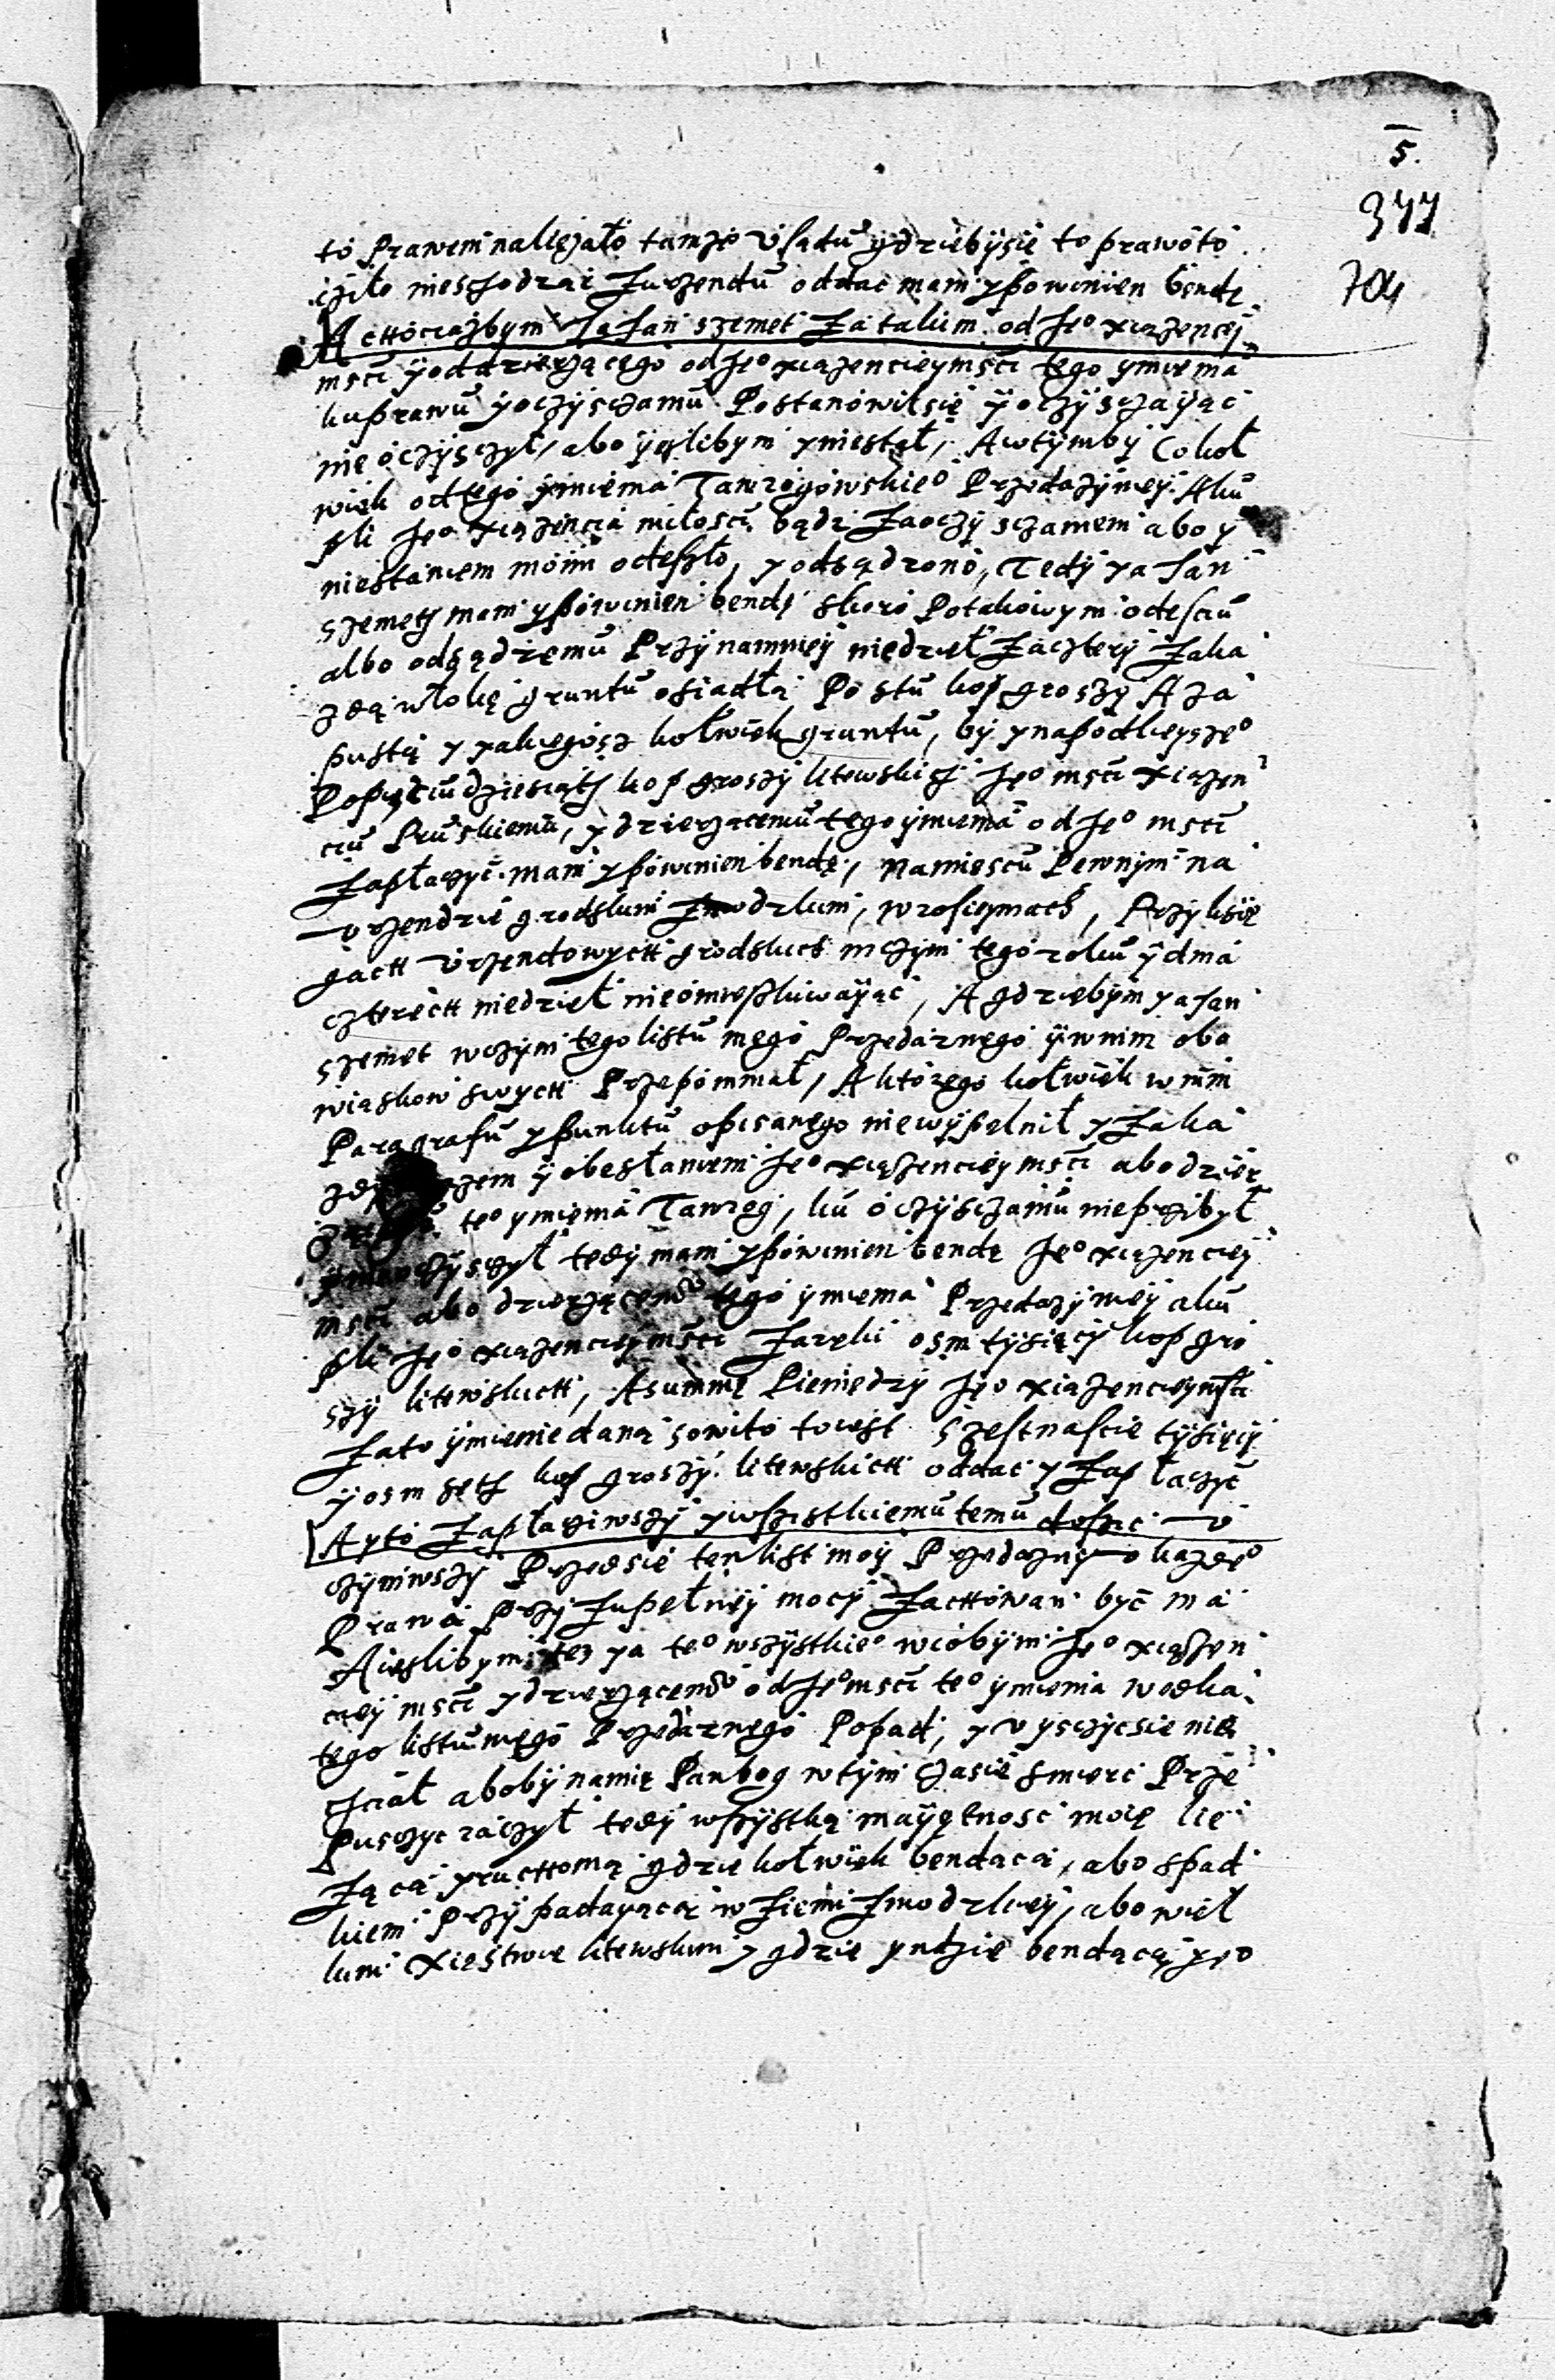 5.
377
704
to Prawem nalieżało tamże v sądu gdziebysię to prawo to
czyło nieschodząc zurzendu oddac mam y powinien bendę
A chociażbym Ja Jan szemet za takim od Jeo xiążencej
msći y od dzierżącego od Jeo xiążencieymsći tego ymienia
kuprawu y oczysczaniu Postanowił się y oczysczaiąc
nie oczyśczył, abo yeslibym y niestał, A wtymby Cokoł
wiek od tego ymienia Tawrogowskieo Przedażymey Aku
pli Jeo xiążencia miłosci bądz zaoczysczaniem abo y
niestaniem moim odeszło, y odsądzono, Tedy ya Jan
szemeth mam y powinien bendę skoro Potakowym odesciu
albo odsądzeniu Przynamniey niedziel zacztery zaka
żdą włokę gruntu osiadłą Po stu kop groszy A za
pustą y yakiegosz kołwiek gruntu, by ynapodlieyszeo
Popięciudziesiąth kop groszy litewskich Jeo msći xiążen
ciu Pruskiemu, y dzierżącemu tego ymienia od Jeo msći
zapłaczyć mam y powinien bendę, namiescu Pewnym na
vrzendzie grodskim zmodzkim, wrosieyniach, Przy księ
gach vrzendowych grodskich niczym tego roku y dnia
czterech niedziel nieomieszkiwaiąc, A gdziebym ya Jan
szemet wczym tego listu mego Przedażnego ywnim obo
wiąskow swych Przepomniał, A którego kołwiek wnim
Paragrafu y punktu opisanego niewypełnił y zaka
żdy zem y obesłaniem Jeo xiążencieymsći abo dzier
teo ymienia Tawrog, ku oczysczaniu nieprzibył
czyszczył tedy mam y powinien bendę Jeo xiążenciey
msći abo dzierżącemu tego ymienia Przedażymey aku
pli Jeo xiążencieymsći Zaręki osm tysięcy kop gro
szy litewskich, A summę Pieniędzy Jeo xiążencieymsći
Zato ymienie daną sowito towest szesnascie tysięcy
y osm seth kop groszy litewskich oddac y zapłaczyć
A yto zapłaciwszy ywszystkiemu temu dosyc v
czyniwszy Przedsię ten list moy Przedazny v każdeo
Prawa Przy zupełney mocy zachowan być ma
A ieslibym tez ya teo wszystkieo wcobym Jeo xiążen
ciey msći y dzierżącemu od Jeomsći teo ymienia wedka
tego listu mego Przedażnego Popad, y v ysczycsie nie
chciał aboby namię Pan bog wtym czasie smierc Prze
Pusczyc raczył tedy wszystką mayętnosc moię lie
żącą yruchomą gdzie kołwiek bendącą, abo spad
kiem Przypadayącą wziemi zmodzkiey, abo wiel
kim xięstwie litewskim y gdzie yndzie bendącą, yeo